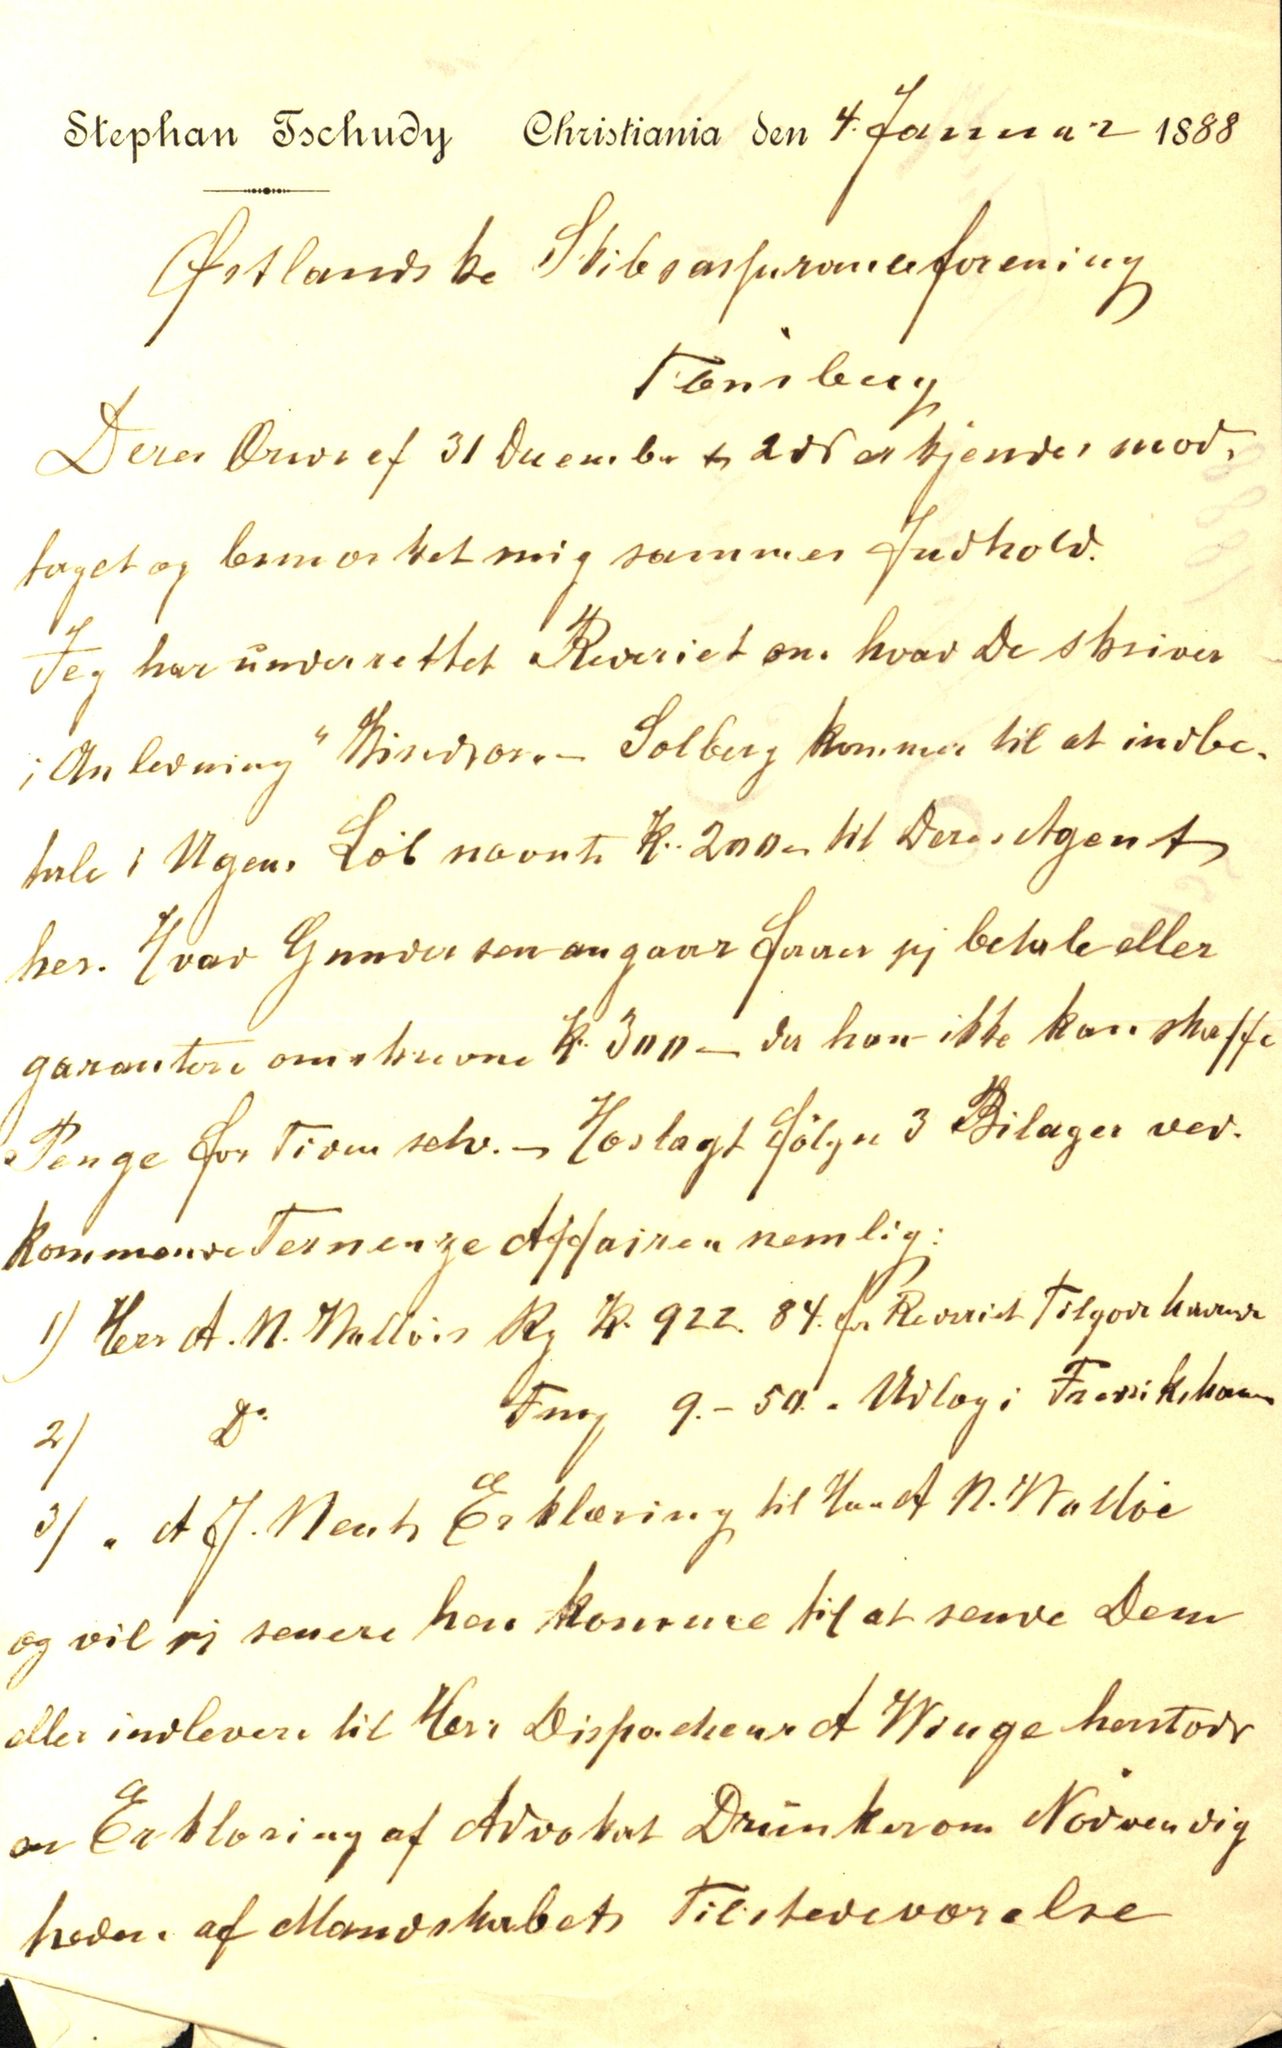 Stephan Tschudy Christiania den 4. Januar 1888
Østlandske Skibsassuranceforening
Tönsberg
Deres Ærede af 31 December & 2 ds erkjendes mod-
taget og bemærket mig sammes Indhold.
Jeg har underrettet Rederiet om hvad De skriver
i Anledning "Windsor. – Solberg kommer til at indbe-
tale i Ugens Löb nævnte K. 200 – til Deres Agent
her. Hvad Gundersen angaar faar jeg betale eller
garantere omskrevne K. 300 – da han ikke kan skaffe
Penge for Tiden selv. – Hoslagt fölger 3 Bilager ved-
kommende Ternenze Affairen nemlig:
1) Herr A. N. Walløes Rg K. 922. 84. for Rederiet Tilgodehavende
2) Do 9. – 50. Udlæg i Fredrikshavn
3) " A J. Erklæring til Herr A N. Walløe
og vil jeg senere hen komme til at sende Dem
eller indlevere til Herr Dispacheur A Winge
en Erklæring af Advokat Drünker om Nödvendig
heden af Mandskabets Tilstedeværelse